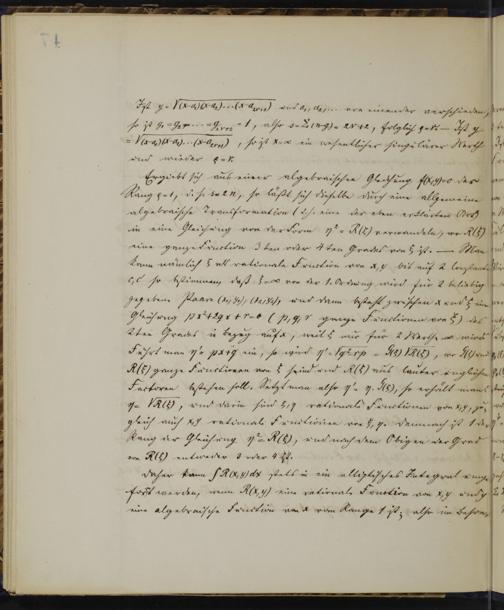 Ist y = √(x-a₁)(x-a₂)...(x-a₂ᵣ₊₂) und a₁, a₂, ... von einander verschieden,
so ist g₁ = g₂ = ... = 1, also s = Σ(n-g) = 2r+2, folglich ρ = r. — Ist y
= √(x-a₁)(x-a₂)...(x-a₂ᵣ₊₁), so ist x=∞ ein wesentlicher singulärer Werth
und wieder ρ = r.
Ergiebt sich aus einer algebraischen Gleichung f(x,y)=0 der
Rang ρ=1, d.h. s=2n, so läßt sich dieselbe durch eine allgemeine
algebraische Transformation (d.h. eine der eben erklärten Art)
in eine Gleichung von der Form η² = R(ξ) verwandeln, wo R(ξ)
eine ganze Function 3ten oder 4ten Grades von ξ ist. — Man
kann nämlich ξ als rationale Function von x, y bis auf 2 Constanten
c, c' so bestimmen, daß ξ=∞ von der 1. Ordnung wird für 2 beliebig
gegebene Paare (x₁,y₁), (x₂,y₂), und dann besteht zwischen x und ξ eine
Gleichung px²+2qx+r=0 (p, q, r ganze Functionen von ξ) des
2ten Grades in bezug auf x, weil ξ nur für 2 Werthe ∞ wird.
Führt man η'= px+q ein, so wird η' = √q²-rp = G(ξ)√R(ξ), wo G(ξ) und
R(ξ) ganze Functionen von ξ sind und R(ξ) aus lauter ungleichen
Factoren bestehen soll. Setzt man also η' = η.G(ξ), so erhält man
η = √R(ξ), und darin sind ξ, η rationale Functionen von x, y, zu-
gleich auch x, y rationale Functionen von ξ, η. Demnach ist 1 der
Rang der Gleichung η² = R(ξ), und nach dem Obigen der Grad
von R(ξ) entweder 3 oder 4.
Daher kann ∫R(x,y)dx stets in ein elliptisches Integral umge-
formt werden, wenn R(x,y) eine rationale Function von x, y und y
eine algebraische Function von x vom Range 1 ist; also im Besonde-